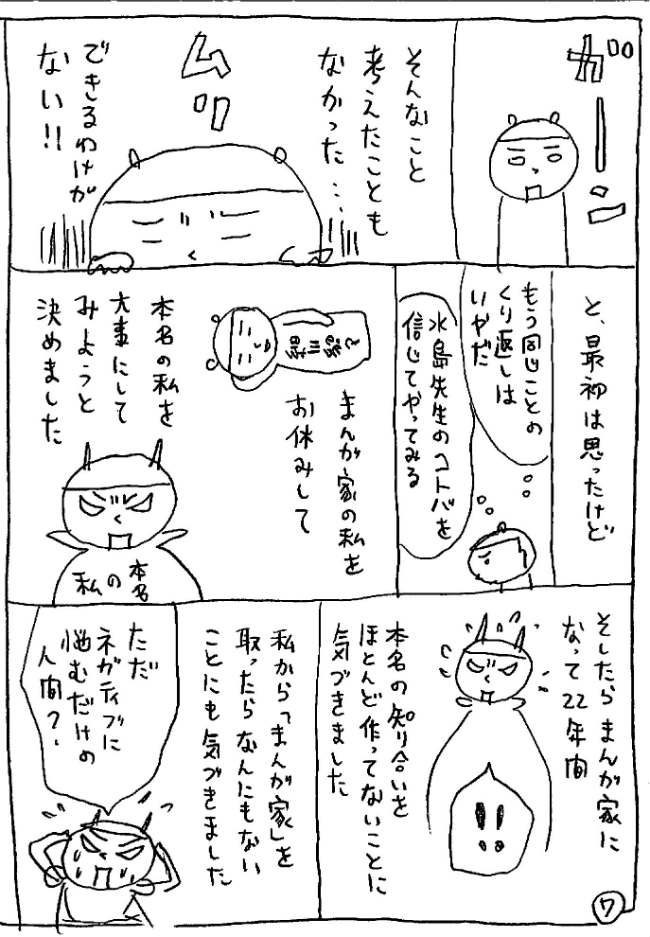 ガーン
そんなこと
考えたことも
なかった…
ムリ
できるわけが
ない!!
と、最初は思ったけど
もう同じことの
くり返しは
いやだ
水島先生のコトバを
信じてやってみる
まんが家の私を
お休みして
本名の私を
大事にして
みようと
決めました
本名
の
私
そしたらまんが家に
なって22年間
!!
本名の知り合いを
ほとんど作ってないことに
気づきました
私から「まんが家」を
取ったらなんにもない
ことにも気づきました
ただ
ネガティブに
悩むだけの
人間?
7